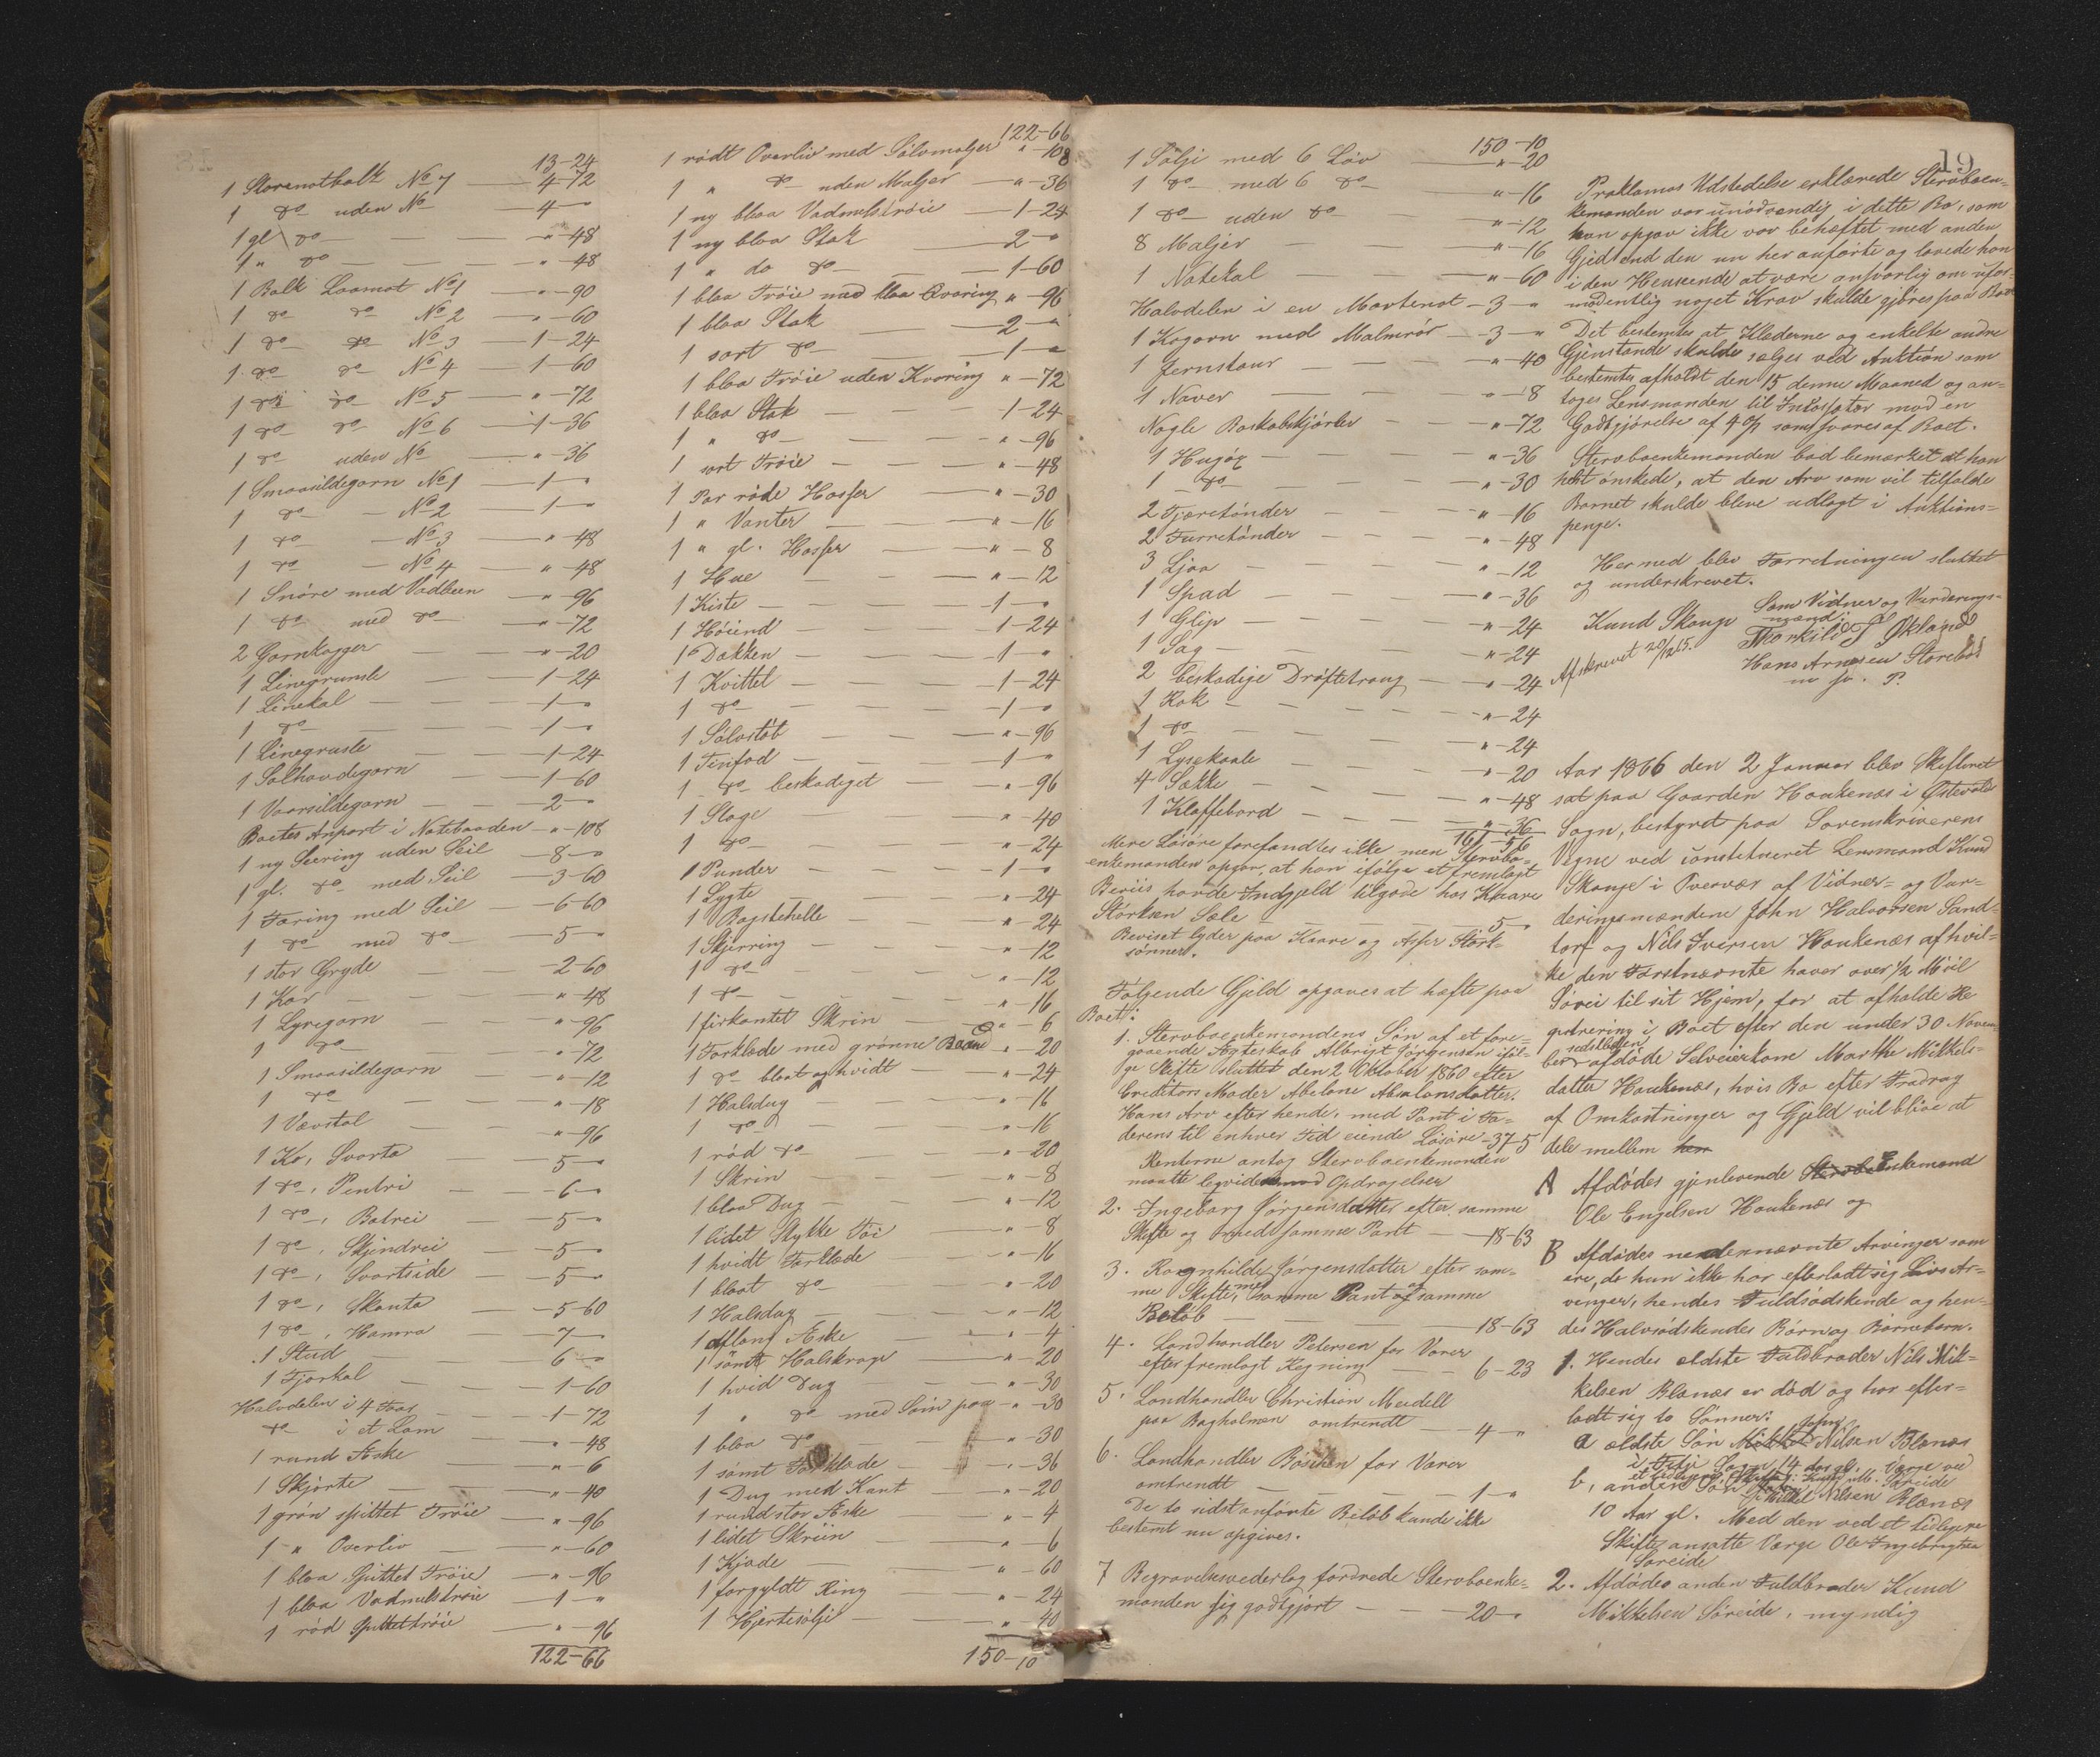 13-24
1 Storenotbalk No 7 — 4-72
1 do uden No — 4-"
1 gl do — "-48
1 " do — "-48
1 Balk Laamot No 1 — "-90
1 do do No 2 — "-60
1 do do No 3 — 1-24
1 do do No 4 — 1-60
1 do do No 5 — "-72
1 do do No 6 — 1-36
1 do uden No — "-36
1 Smaasildegarn No 1 — 1-"
1 do — No 2 — 1-"
1 do — No 3 — "-48
1 do — No 4 — "-48
1 Snøre med Vadbeen — "-96
1 do med do — "-72
2 Garnkagger — "-20
1 Linegrunsle — 1-24
1 Linekal — 1-"
1 do — 1-"
1 Linegrusle — 1-24
1 Salhovdegarn — 1-60
1 Vaarsildegarn — 2-"
Boets Anpart i Notebaaden — "-108
1 ny Seering uden Seil — 8-"
1 gl. do med Seil — 3-60
1 Færing med Seil — 6-60
1 do med do — 5-"
1 stor Gryde — 2-60
1 Kar — "-48
1 Lyregarn — "-96
1 do — "-72
1 Smaasildegarn — "-12
1 do — "-18
1 Vævstol — "-96
1 Ko, Svarta — 5-"
1 do, Pentri — 6-"
1 do, Batrei — 5-"
1 do, Skjindrei — 5-"
1 do, Svartside — 5-"
1 do, Skauta — 5-60
1 do, Hamra — 7-"
1 Stud — 6-"
1 Fjorkal — 1-60
Halvdelen i 4 Faar — 1-72
do i et Lam — "-48
1 rund Æske — "-6
1 Skjorte — "-40
1 grøn spittet Trøie — "-96
1 " Overliv — "-60
1 blaa Spittet Trøie — "-96
1 blaa Vadmelstrøie — 1-"
1 rød Spittetrøie — "-96
122-66
122-66
1 rødt Overliv med Sølvmaljer "-108
1 " do uden Maljer — "-36
1 ny blaa Vadmelstrøie — 1-24
1 ny blaa Stak — 2-"
1 " do do — 1-60
1 blaa Trøie med blaa Qvaring "-96
1 blaa Stak — 2-"
1 sort do — 1-"
1 blaa Trøie uden Kvaring "-72
1 blaa Stak — 1-24
1 " do — "-96
1 sort Trøie — "-48
1 Par røde Hosser — "-30
1 " Vanter — "-16
1 " gl. Hosser — "-8
1 Hue — "-12
1 Kiste — 1-"
1 Høiend — 1-24
1 Dakken — 1-"
1 Kvittel — 1-24
1 do — 1-"
1 Sølvstøb — "-96
1 Tinfad — 1-"
1 do beskadiget — "-96
1 Stage — "-40
1 do — "-24
1 Punder — 1-"
1 Lygte — "-24
1 Bagstehelle — "-24
1 Skjerring — "-12
1 do — "-12
1 do — "-16
1 firkantet Skrin — "-6
1 Forklæde med grønne Baand "-20
1 do blaat og hvidt — "-24
1 Halsdug — "-16
1 do — "-16
1 rød do — "-20
1 Skrin — "-8
1 blaa Dug — "-12
1 lidet Stykke Tøi — "-8
1 hvidt Forklæde — "-16
1 blaat do — "-20
1 Halsdug — "-12
1 aflang Æske — "-4
1 sømt Halskrage — "-20
1 hvid Dug — "-30
1 " do med Søm paa — "-30
1 blaa do — "-30
1 sømt Forklæde — "-36
1 Dug med Kant — "-20
1 rund stor Æske — "-4
1 lidet Skriin — "-6
1 Kjæde — "-60
1 forgyldt Ring — "-24
1 Hjertesølje — "-40
150-10
150-10
1 Sølje med 6 Løv — "-20
1 do med 6 do — "-16
1 do uden do — "-12
8 Maljer — "-16
1 Notekal — "-60
Halvdelen i en Mortenot — 3-"
1 Kogorn med Malmrør — 3-"
1 Jernstaur — "-40
1 Naver — "-8
Nogle Boskabskjørler — "-72
1 Hugøx — "-36
1 do — "-30
2 Tjæretønder — "-16
2 Turretønder — "-48
3 Ljaa — "-12
1 Spad — "-36
1 Glip — "-24
1 Sag — "-24
2 beskadige Drøftetraug — "-24
1 Rok — "-24
1 do — "-24
1 Lysekaale — "-20
4 Sække — "-48
1 Klaffebord — "-36
161-56
Mere Løsøre forefandtes ikke men Stervbo-
enkemanden opgav, at han ifølge et fremlagt
Beviis havde Indgjeld tilgode hos Kaare
Størksen Sæle — 5-"
Beviset lyder paa Kaare og Asser Størk-
sønner.
Følgende Gjeld opgaves at hæfte paa
Boet:
1. Stervboenkemandens Søn af et fore-
gaaende Ægteskab Albrigt Jørgensen iføl-
ge Skifte sluttet den 2 Oktober 1860 efter
Creditors Moder Abelone Absalonsdatter.
Hans Arv efter hende, med Pant i Fa-
derens til enhver Tid eiende Løsøre — 37-5
Renterne antog Stervboenkemanden
maatte ligvidere mod Opdragelsen
2. Ingeborg Jørgensdatter efter samme
Skifte og med samme Pant — 18-63
3. Ragnhilde Jørgensdatter efter sam-
me Skifte, med samme Pant og samme
Beløb — 18-63
4. Landhandler Petersen for Varer
efter fremlagt Regning — 6-23
5. Landhandler Christian Meidell
paa Bagholmen omtrendt — 4-"
6. Landhandler Røssen for Varer
omtrendt — 1-"
De to sidstanførte Beløb kunde ikke
bestemt nu opgives.
7 Begravelsesvederlag fordrede Stervboenke-
manden sig godtgjort — 20-"
19
Proklamas Udstedelse erklærede Stervboen-
kemanden var unødvendig i dette Bo, som
han opgav ikke var behæftet med anden
Gjeld end den nu her anførte og lovede han
i den Henseende at være ansvarlig om ufor-
modentlig noget Krav skulde gjøres paa Boet
Det bestemtes at Klæderne og enkelte andre
Gjenstande skulde sælges ved Auktion som
bestemtes afholdt den 15 denne Maaned og an-
toges Lensmanden til Inkassator mod en
Godtgjørelse af 4 % som svares af Boet.
Stervboenkemanden bad bemærket at han
helst ønskede, at den Arv som vil tilfalde
Barnet skulde blive udlagt i Auktions-
penge.
Hermed blev Forretningen sluttet
og underskrevet.
Som Vidner og Vurderings-
Knud Skauge mænd:
Thorkild T Økland
Afskrevet 20/12 65. Hans Arnesen Storebø
m. f. P.
Aar 1866 den 2 Januar blev Skifteret
sat paa Gaarden Haukenæs i Østevold
Sogn, bestyret paa Sorenskriverens
Vegne ved constitueret Lensmand Knud
Skauge i Overvær af Vidner- og Vur-
deringsmændene John Halvorsen Sand-
torf og Nils Iversen Haukenæs af hvil-
ke den Førstnævnte haver over 1/2 Miil
Søvei til sit Hjem, for at afholde Re
gistrering i Boet efter den under 30 Novem-
sidstleden
ber afdøde Selveierkone Marthe Mikkels-
datter Haukenæs, hvis Bo efter Fradrag
af Omkostninger og Gjeld vil blive at
dele mellem hen
A Afdødes gjenlevende Stervbo Enkemand
Ole Engelsen Haukenæs og
B Afdødes nedennævnte Arvinger som
ere, da hun ikke har efterladt sig Livs Ar-
vinger, hendes Fuldsødskende og hen-
des Halvsødskendes Børn og Børnebørn.
1. Hendes ældste Fuldbroder Nils Mik-
kelsen Blænæs er død og har efter-
ladt sig to Sønner:
John
a ældste Søn Mikkel Nilsen Blænæs
i Fitje Sogn 14 Aar gl. Værge ved
b, anden Søn Mikkel Nilsen Blænæs
10 Aar gl. Med den ved et tidligere
Skifte ansatte Værge Ole Ingebrigtsen
Søreide
2. Afdødes anden Fuldbroder Knud
Mikkelsen Søreide, myndig